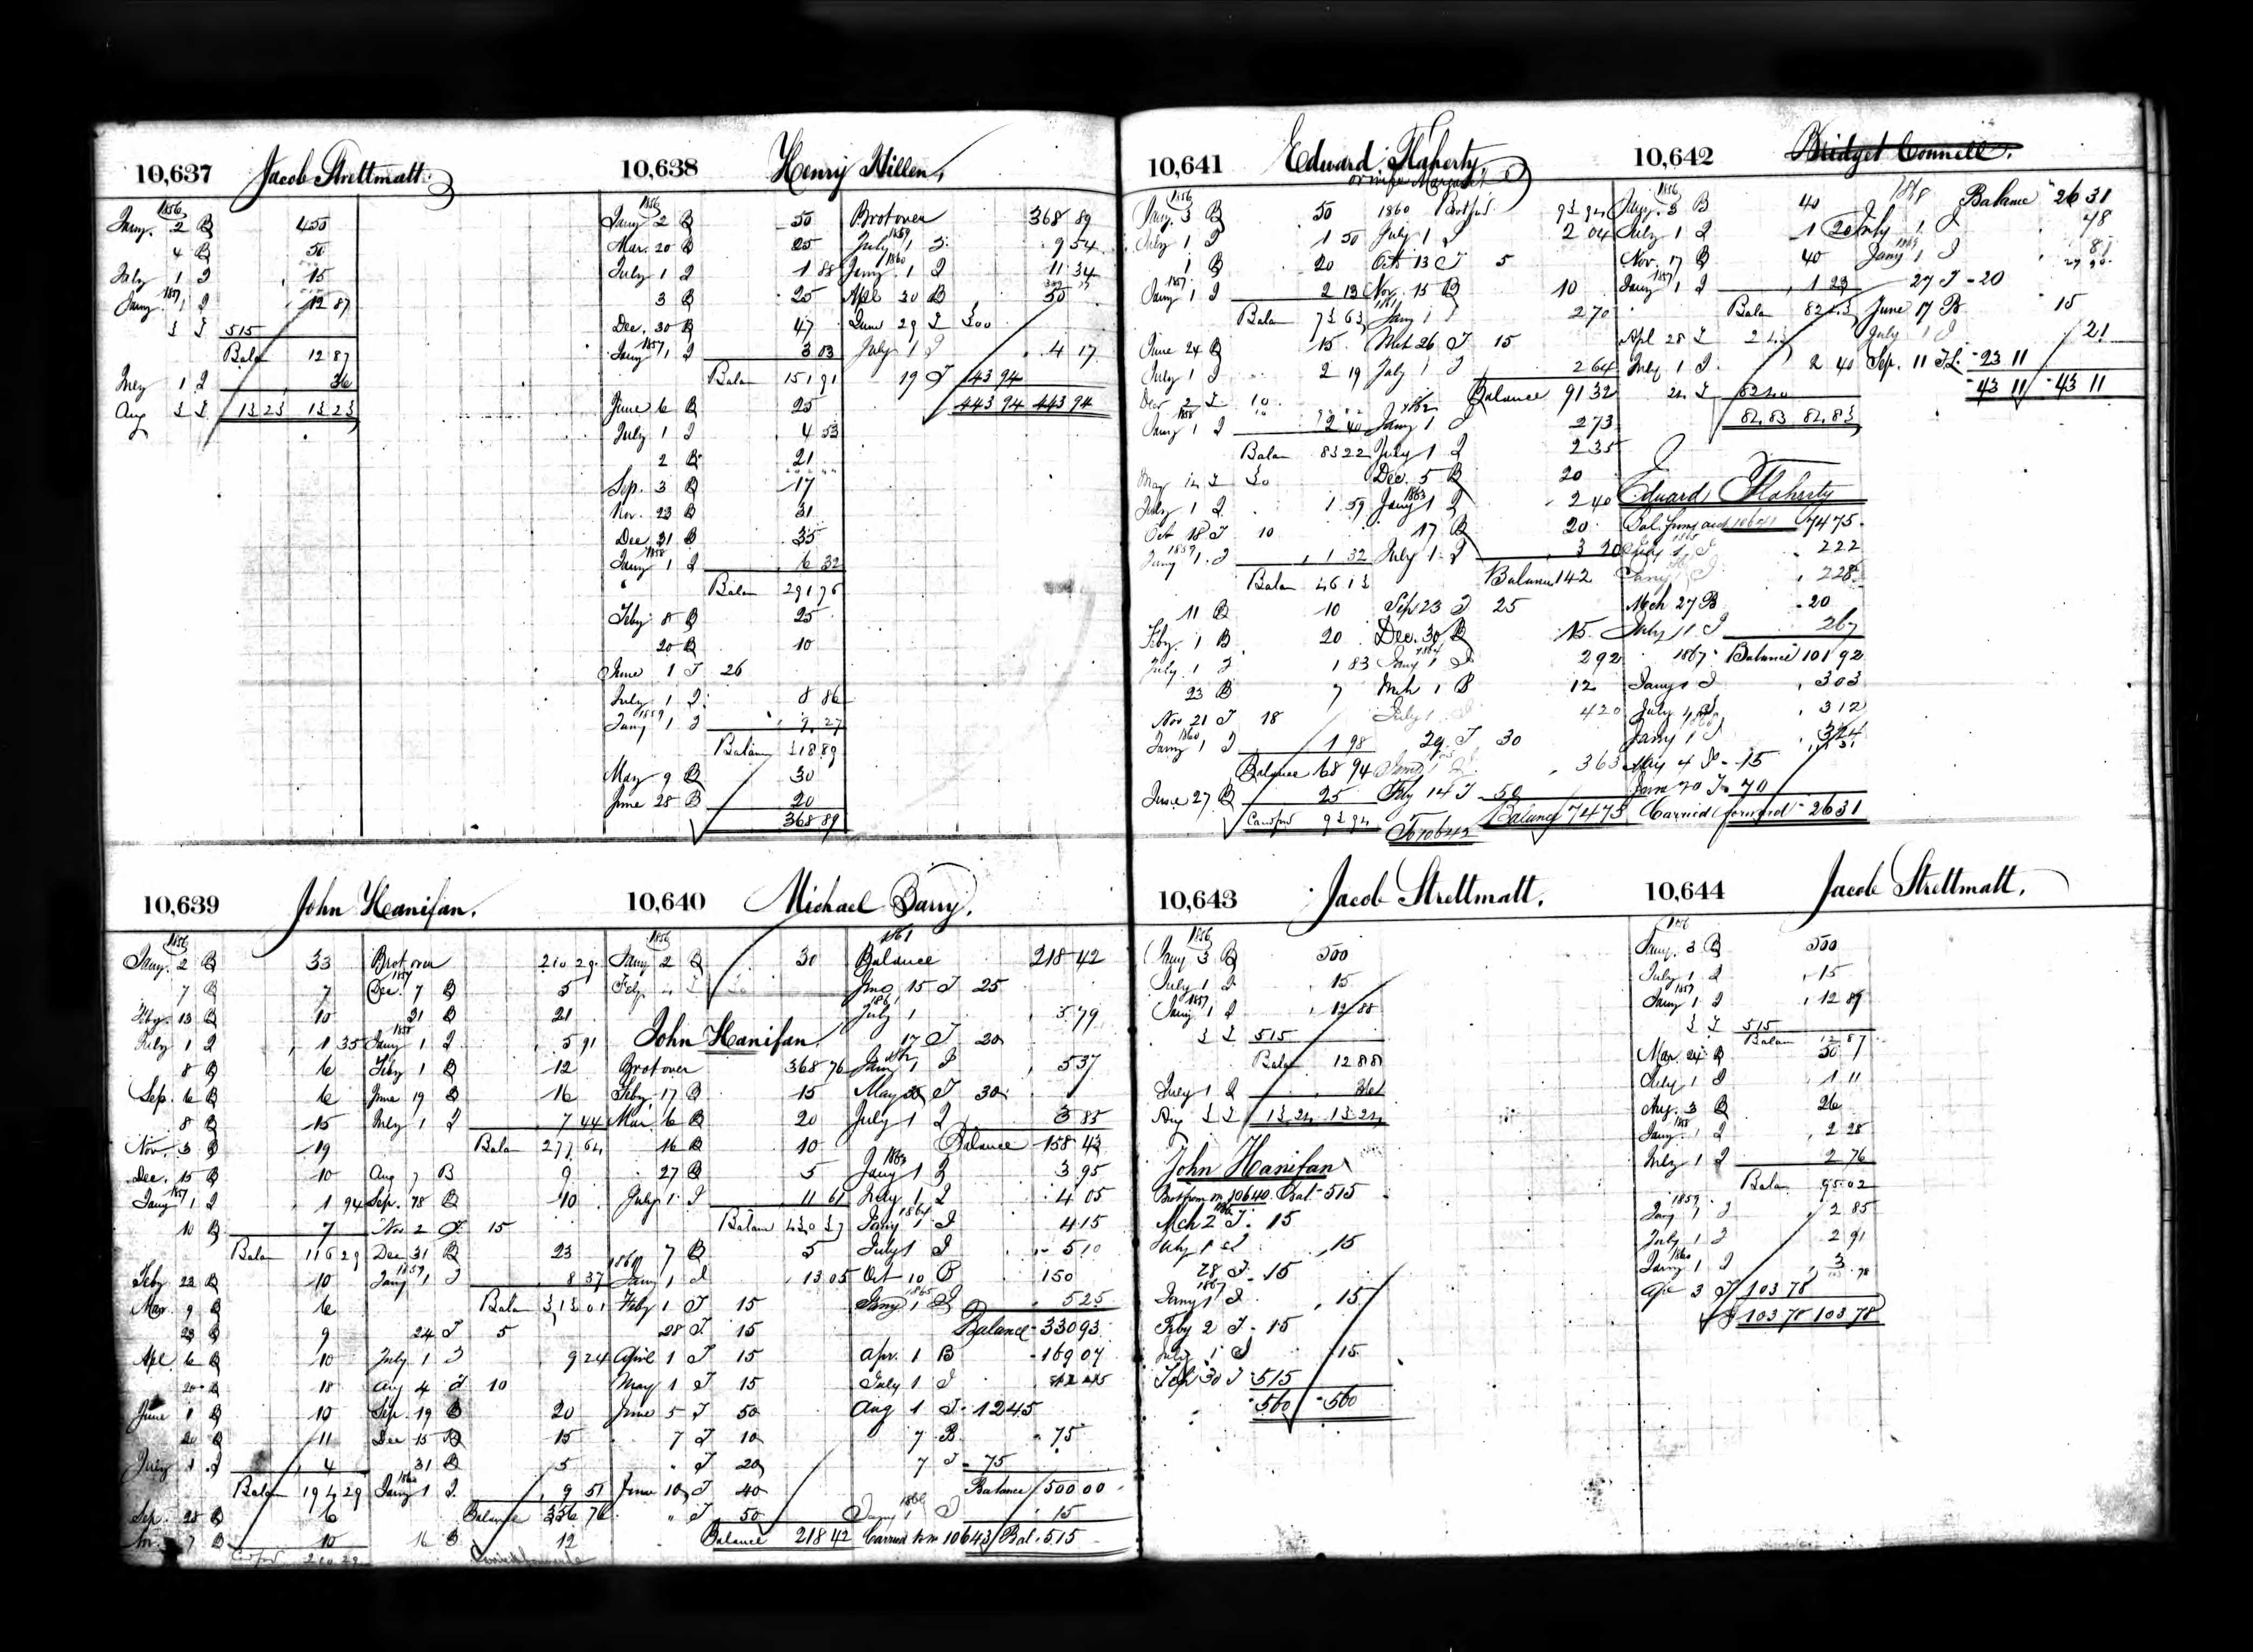 10,637 Jacob Strettmatt.
1856
Jany. 2 B 450
4 B 50
July 1 I 15
1857
Jany. 1 I 12 87
3 T 515
Balan 12 87
July 1 I 36
Aug 3 T 13 23 13 23
10,638 Henry Hillen,
1856
Jany 2 B 50
Mar. 20 B 25
July 1 I 1 88
3 B 25
Dec. 30 B 47
Jany 1857 1 I 3 03
Balan 151 91
June 6 B 25
July 1 I 4 53
2 B 21
Sep. 3 B 17
Nov. 23 B 31
Dec 31 B 35
1858
Jany 1 I 6 32
Balan 291 76
Feby 8 B 25
20 B 10
June 1 T 26
July 1 I 8 86
Jany 1859 1 I 9 27
Balan 318 89
May 9 B 30
June 28 B 20
368 89
Brot over 368 89
1859
July 1 I 9 54
1860
Jany. 1 I 11 34
Apl 30 B 50
June 29 T 300
July 1 I 4 17
19 T 143 94
443 94 443 94
10,639 John Hanifan.
1856
Jany. 2 B 33
7 B 7
Feby. 13 B 10
July 1 I 1 35
8 B 6
Sep. 6 B 6
8 B 15
Nov. 3 B 19
Dec. 15 B 10
1857
Jany 1 I 1 94
10 B 7
Balan 116 29
Feby 22 B 10
Mar. 9 B 6
23 B 9
Apl. 6 B 10
20 B 18
June 1 B 10
20 B 11
July 1 I 4
Balan 194 29
Sep. 28 B 6
7 B 10
Brot over 210 29
1857
Dec. 7 B 5
31 B 21
1858
Jany 1 I 5 91
Feby 1 B 12
June 19 B 16
July 1 I 7 44
Balan 277 64
Aug 7 B 9
Sep. 78 B 10
Nov 2 T 15
Dec 31 B 23
1859
Jany 1 I 8 37
Balan 313 01
24 T 5
July 1 I 9 24
Aug 4 T 10
Sep. 19 B 20
Dec 15 B 15
31 B 5
1860
Jany 1 I 9 51
Balance 356 76
16 B 12
10,640 Michael Barry.
1856
Jany 2 B 30
John Hanifan
Brot over 368 76
Feby. 17 B 15
Mar. 6 B 20
16 B 10
27 B 5
July 1 I 11 61
Balan 430 37
7 B 5
Jany 1 I 13 05
Feby 1 T 15
28 T 15
April 1 T 15
May 1 T 15
June 5 T 50
7 T 10
" T 20
June 10 T 40
" T 50
Balance 218 42
1861
Balance 218 42
15 T 25
1861
July 1 5 79
17 T 20
Jany 1 I 5 37
May 30 T 30
July 1 I 3 85
Balance 158 43
1863
Jany 1 I 3 95
July 1 I 4 05
1864
Jany 1 I 4 15
July 1 I 5 10
Oct 10 B 150
1865
Jany 1 I 5 25
Balance 330 93
Apr. 1 B 169 07
July 1 I 12 45
Aug 1 T 12 45
7 B 75
7 T 75
Balance 500 00
1866
Jany 1 I 15
Carried to 10643 Bal. 515
10,641 Edward Flaherty,
or wife Margaret
1856
Jany. 3 B 50
July 1 I 1 50
1 B 20
1857
Jany 1 I 2 13
Balan 73 63
June 24 B 15
July 1 I 2 19
Dec 2 T 10
1858
Jany 1 I 2 40
Balan 83 22
July 1 I 1 59
Oct 18 T 10
1859
Jany 1 I 1 32
Balan 46 13
11 B 10
Feby. 1 B 20
July. 1 I 1 83
23 B 7
Nov 21 T 18
1860
Jany 1 I 1 98
Balance 68 94
June 27 B 25
93 94
1860
July 1 I 2 04
Oct 13 T 5
Nov. 15 B 10
1861
Jany 1 I 2 70
Mch 26 T 15
July 1 I 2 64
Balance 91 32
1862
Jany 1 I 2 73
July 1 I 2 35
Dec. 5 B 20
1863
Jany 1 I 2 40
17 B 20
July 1 I 3 20
Balance 142
Sep 23 T 25
Dec. 30 B 15
1864
Jany 1 I 2 92
Mch 1 B 12
July 1 I 4 20
29 T 30
3 63
Feby 14 T 50
Balance 74 75
To 10642
10,642 Bridget Connell.
1856
Jany. 3 B 40
July 1 I 1 20
Nov. 17 B 40
1857
Jany 1 I 1 23
Balan 82 43
Apl 28 T
July 1 I 2 40
82 83 82 83
Edward Flaherty
Bal. from acct 10641 74 75
July 1 I 2 22
Jany 1 I 2 28
Mch 27 B 20
July 1 I 2 67
1867 Balance 101 92
Jany 1 I 3 03
July 1 I 3 12
Jany 1 I 3 24
May 4 T 15
June 20 T 70
Carried forward 26 31
1868 Balance 26 31
July 1 I 78
1869
Jany 1 I 81
27 T 20
June 17 B 15
July 1 I 21
Sep. 11 T 23 11
43 11 43 11
10,643 Jacob Strettmatt.
1856
Jany 3 B 500
July 1 I 15
1857
Jany 1 I 12 88
3 T 515
Balan 12 88
July 1 I 36
Aug 3 T 13 24 13 24
John Hanifan
Brot from 10640 Bal. 515
Mch 2 T. 15
July 1 I 15
28 T. 15
1867
Jany 1 I 15
Feby 2 T. 15
July 1 I 15
Sep 30 T 515
560 560
10,644 Jacob Strettmatt.
1856
Jany. 3 B 500
July 1 I 15
1857
Jany 1 I 12 87
3 T 515
Balan 12 87
Mar. 24 B 50
July 1 I 1 11
Aug. 3 B 26
1858
Jany 1 I 2 28
July 1 I 2 76
Balan 95 02
1859
Jany 1 I 2 85
July 1 I 2 91
1860
Jany 1 I 3
Apl 3 T 103 78
103 78 103 78